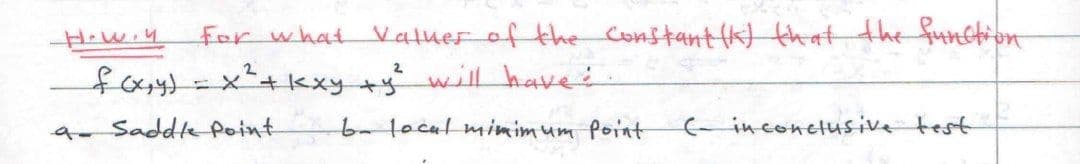 H.W.4 For what Values of the Constant (K) that the function
f(x,y) = x² + kxy + y² will have:
a- Saddle Point b- local mimimum Point C- inconclusive test